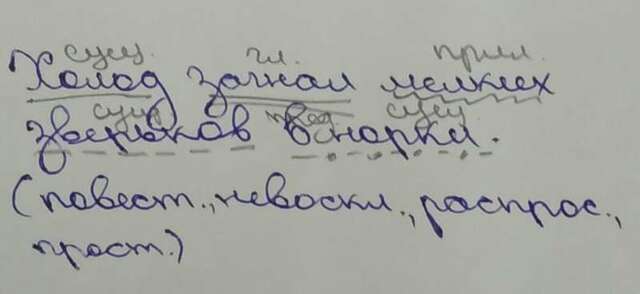 сущ. гл. прил.
Холод загнал мелких
сущ. пред. сущ.
зверьков в норки.
(повест., невоскл., распрос.,
прост.)